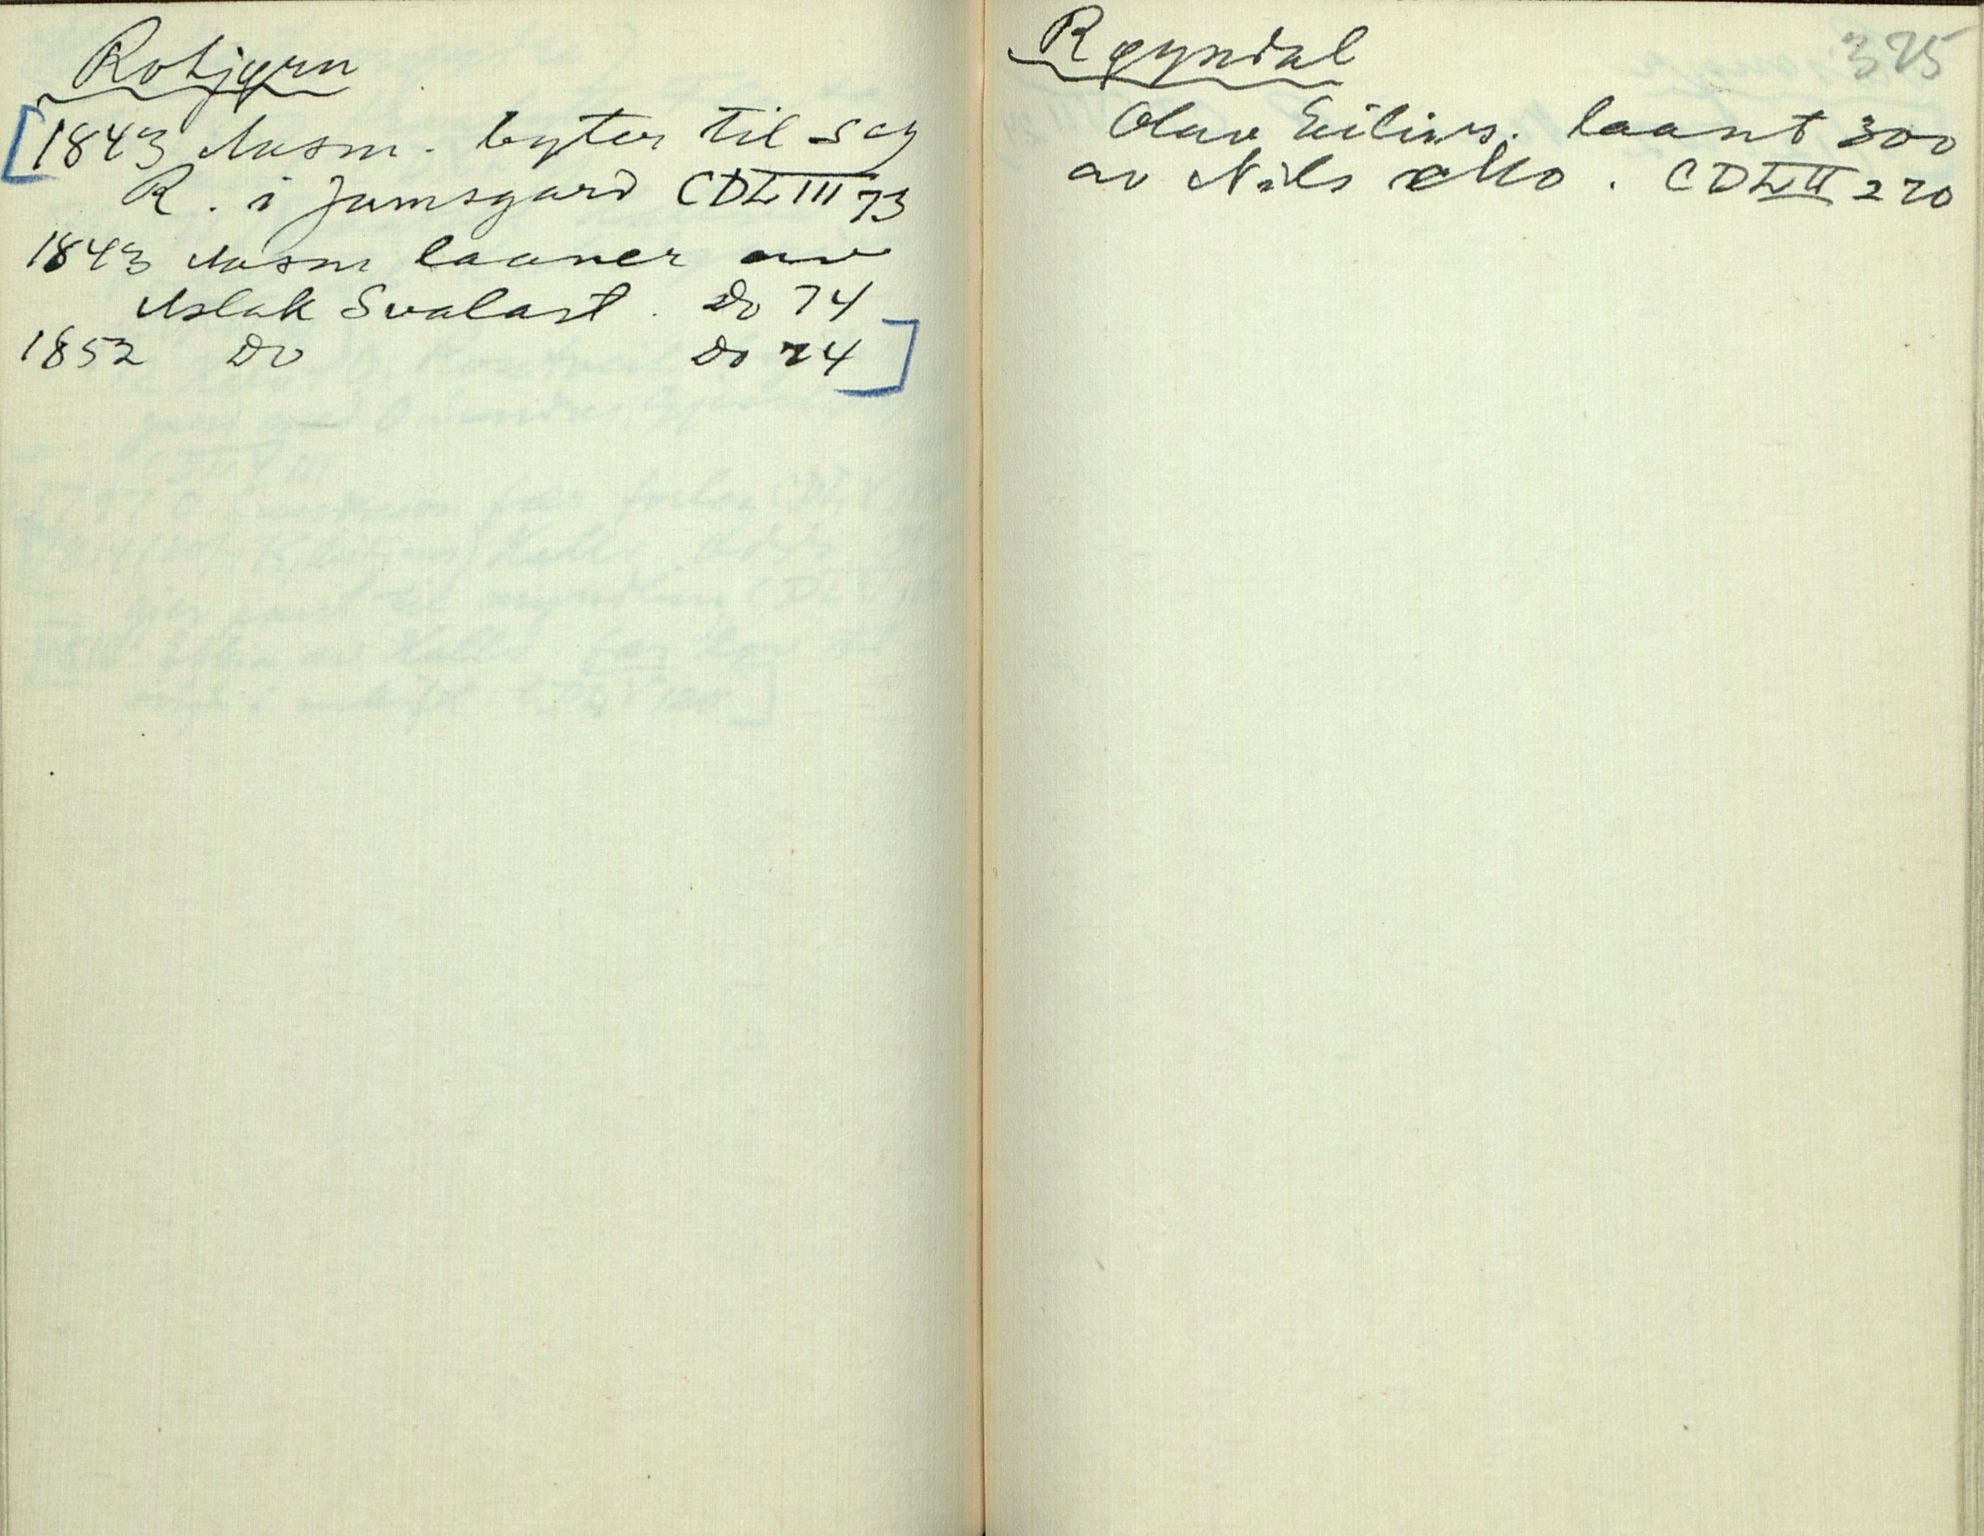 Robjørn
[1843 Aasm. byter til seg
R. i Jamsgard CDLIII 73
1843 Aasm laaner av
Aslak Svalast. Do 74
1852 Do Do 74]
375
Røyndal
Olav Eilivs. laant 300
av Nils Mo. CDLII 270